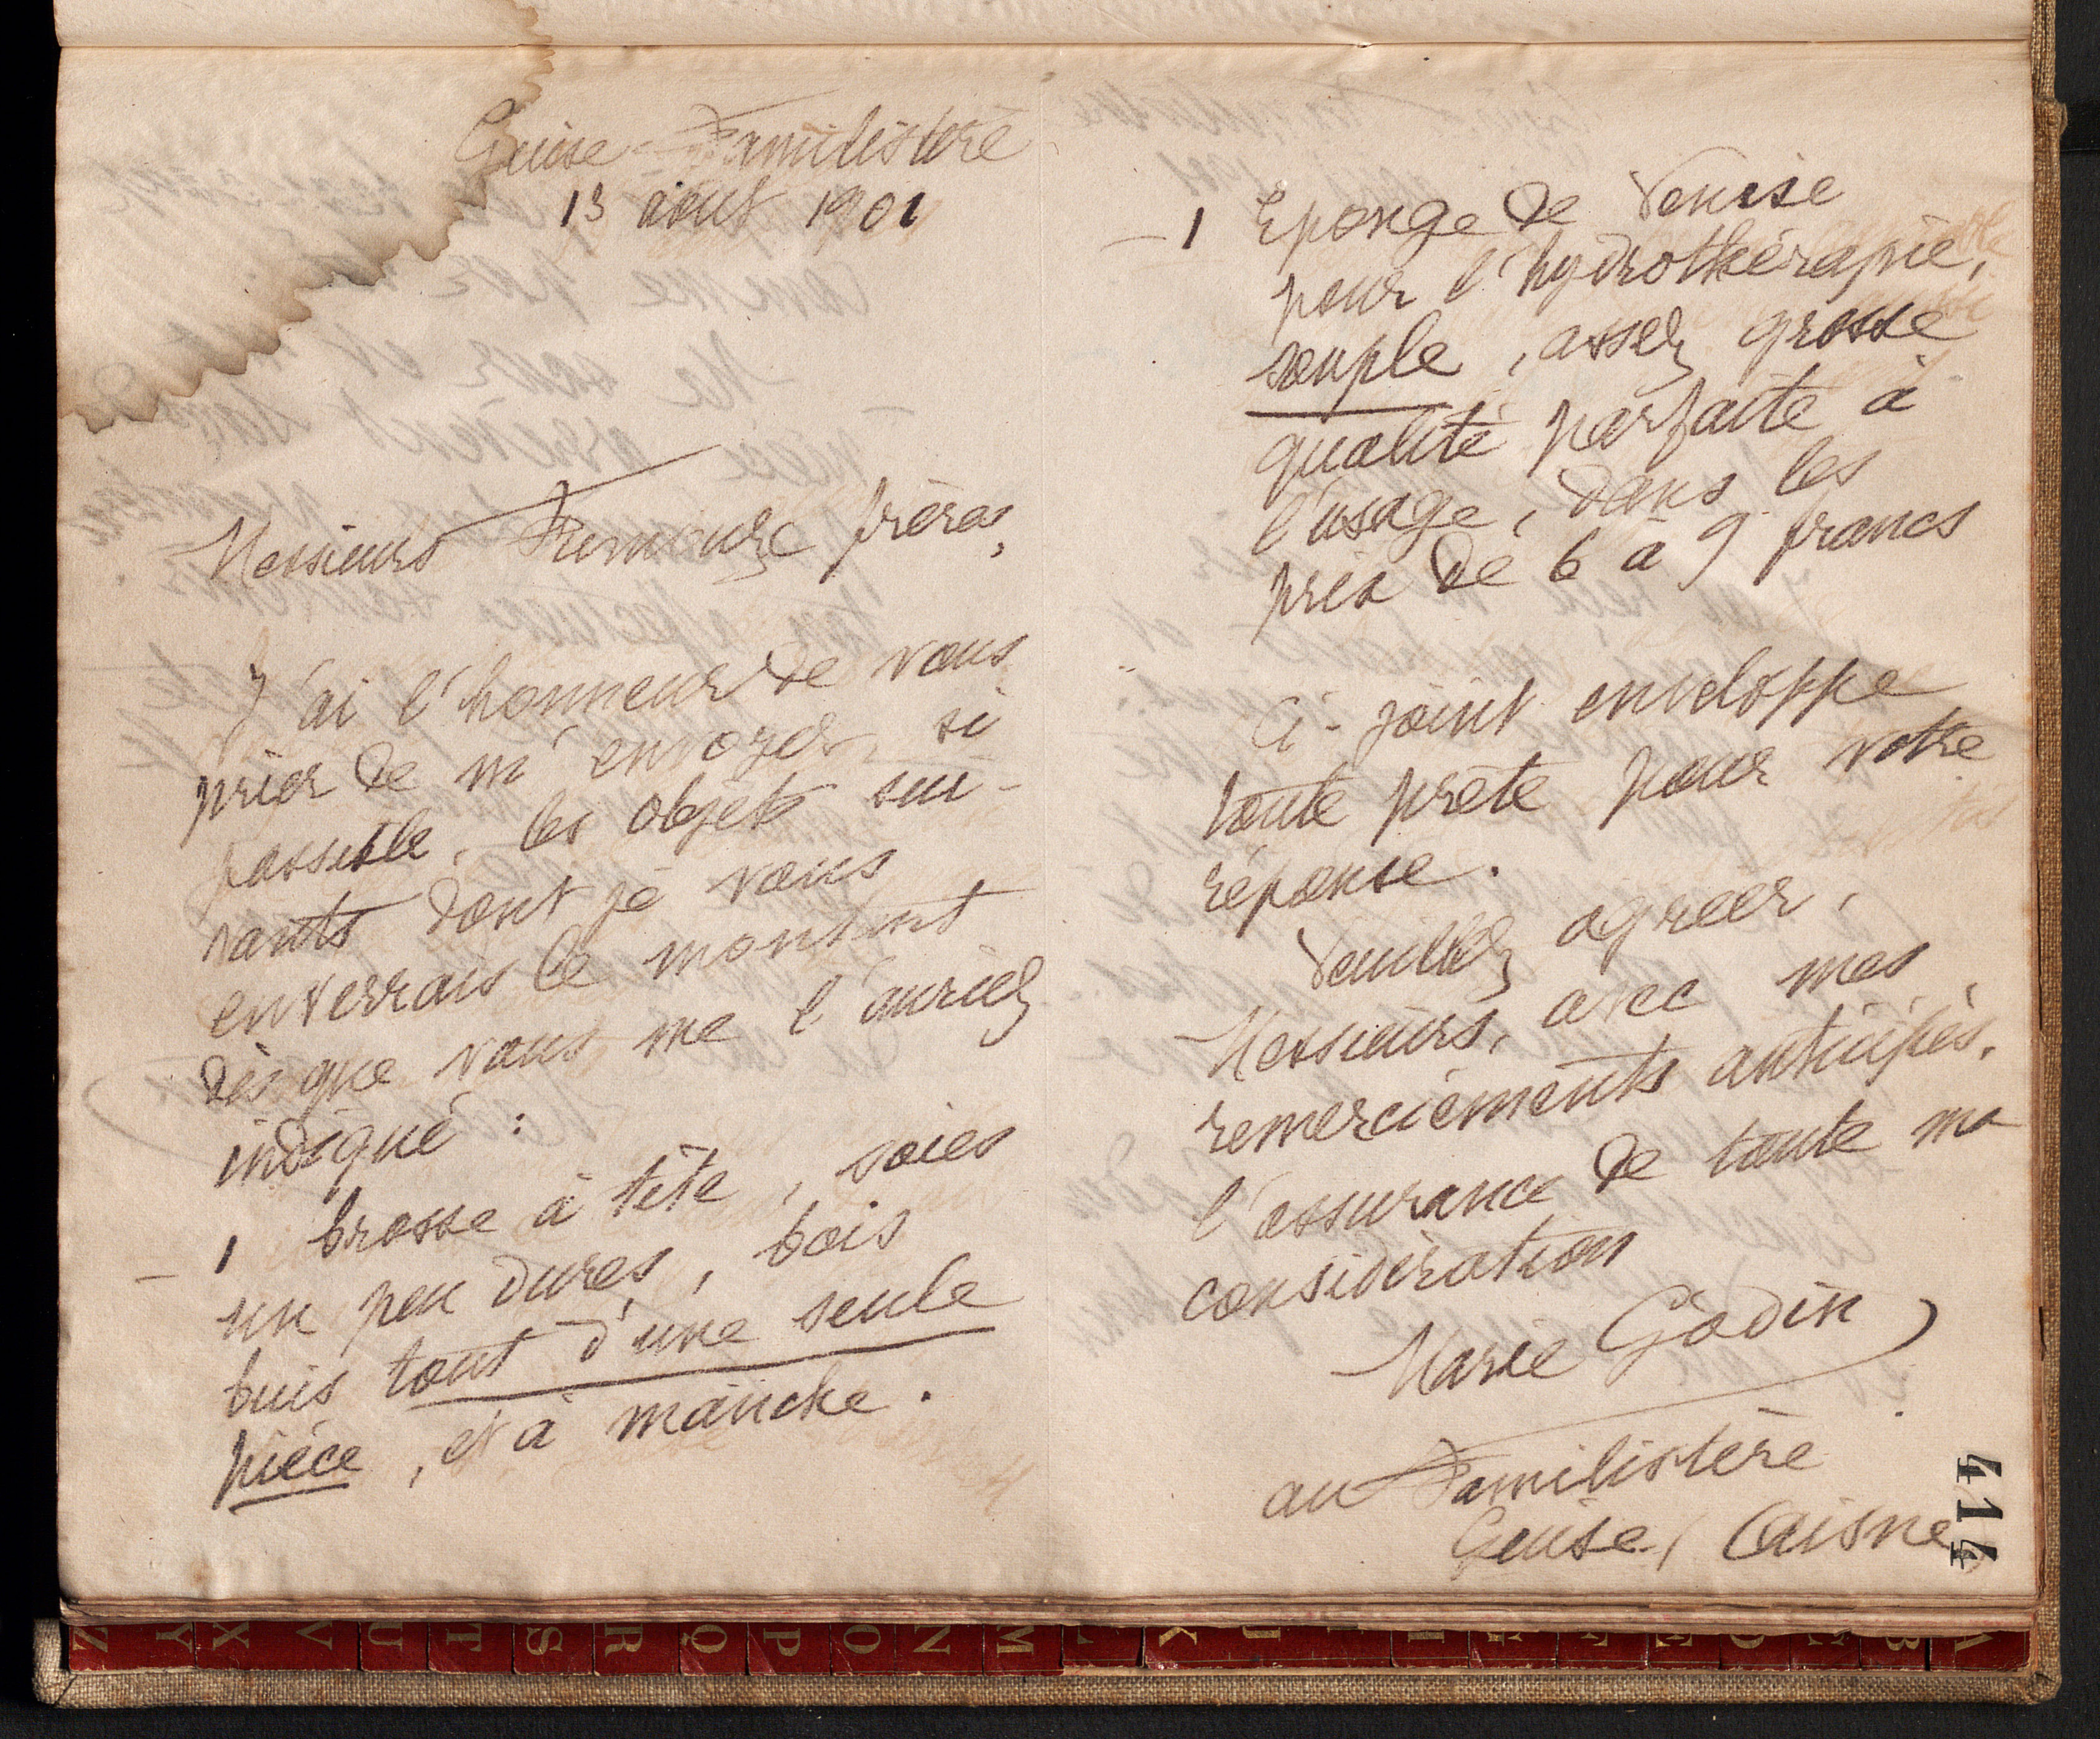 Guise Familistère
13 août 1901
Messieurs Fumouze frères,
J'ai l'honneur de vous
prier de m'envoyer, si
possible, les objets sui-
vants dont je vous
enverrais le montant
dès que vous me l'auriez
indiqué :
– 1 brosse à tête, soies
un peu dures, bois
buis tout d'une seule
pièce, et à manche.
– 1 Eponge de Venise
pour l'hydrothérapie,
souple, assez grosse
qualité parfaite à
l'usage, dans les
prix de 6 à 9 francs
Ci-joint enveloppe
toute prête pour votre
réponse.
Veuillez agréer,
Messieurs, avec mes
remerciements anticipés,
l'assurance de toute ma
considération
Marie Godin
au Familistère
Guise, Aisne
414
Z Y X V U T S R Q P O N M L K J I H G F E D C B A